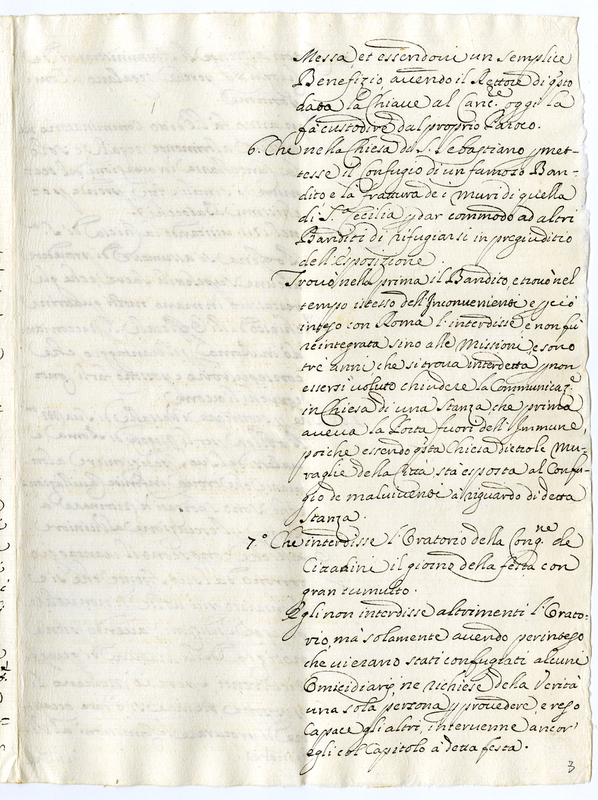 Messa, et essendovi un semplice
Benefizio avendo il Rettore di qsto
data la chiave al Canc.re oggi la
fa custodire dal proprio Paroco.
6. Che nella Chiesa di S. Sebastiano pmet-
tesse il Confugio di un famoso Ban-
dito e la frattura de i muri di quella
di S.ta Cecilia p dar commodo ad altri
Banditi di rifugiarsi in pregiuditio
dell'Esposizione.
Trovò nella prima il Bandito, e trovò nel
tempo istesso dell'Inconvenienti e p ciò
inteso con Roma l'interdisse, e non fù
reintegrata sino alle Missioni, e sono
trè anni che si trova interdetta p non
essersi voluto chiudere la Communicaz.e
in Chiesa di una Stanza che prima
aveva la Porta fuori dell'Immune,
poiche essendo qsta Chiesa dietro le Mu-
raglie della Città sta esposta al Confu-
gio de malviventi à riguardo di detta
Stanza.
7.o Che interdisse l'Oratorio della Cong.ne de
Citadini il giorno della festa con
gran tumulto.
Egli non interdisse altrimenti l'Orato-
rio, mà solamente avendo perinteso
che vi erano stati confugiati alcuni
Omicidiarj ne richiese della verità
una sola persona p provedere e reso
capace gli altri, intervenne ancor'
egli col Capitolo à detta festa.
3